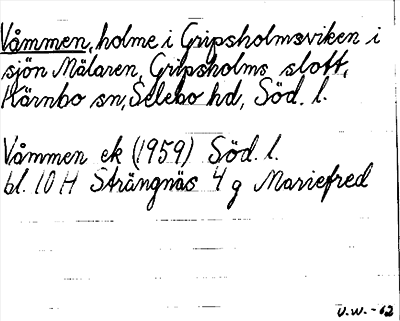 Våmmen, holme i Gripsholmsviken i
sjön Mälaren, Gripsholms slott,
Kärnbo sn, Selebo hd, Söd. l.
Våmmen ek (1959) Söd. l.
bl. 10 H Strängnäs 4 g Mariefred
V.W. -62